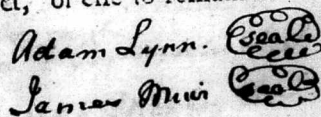 Adam Lynn. seal
James Muir seal